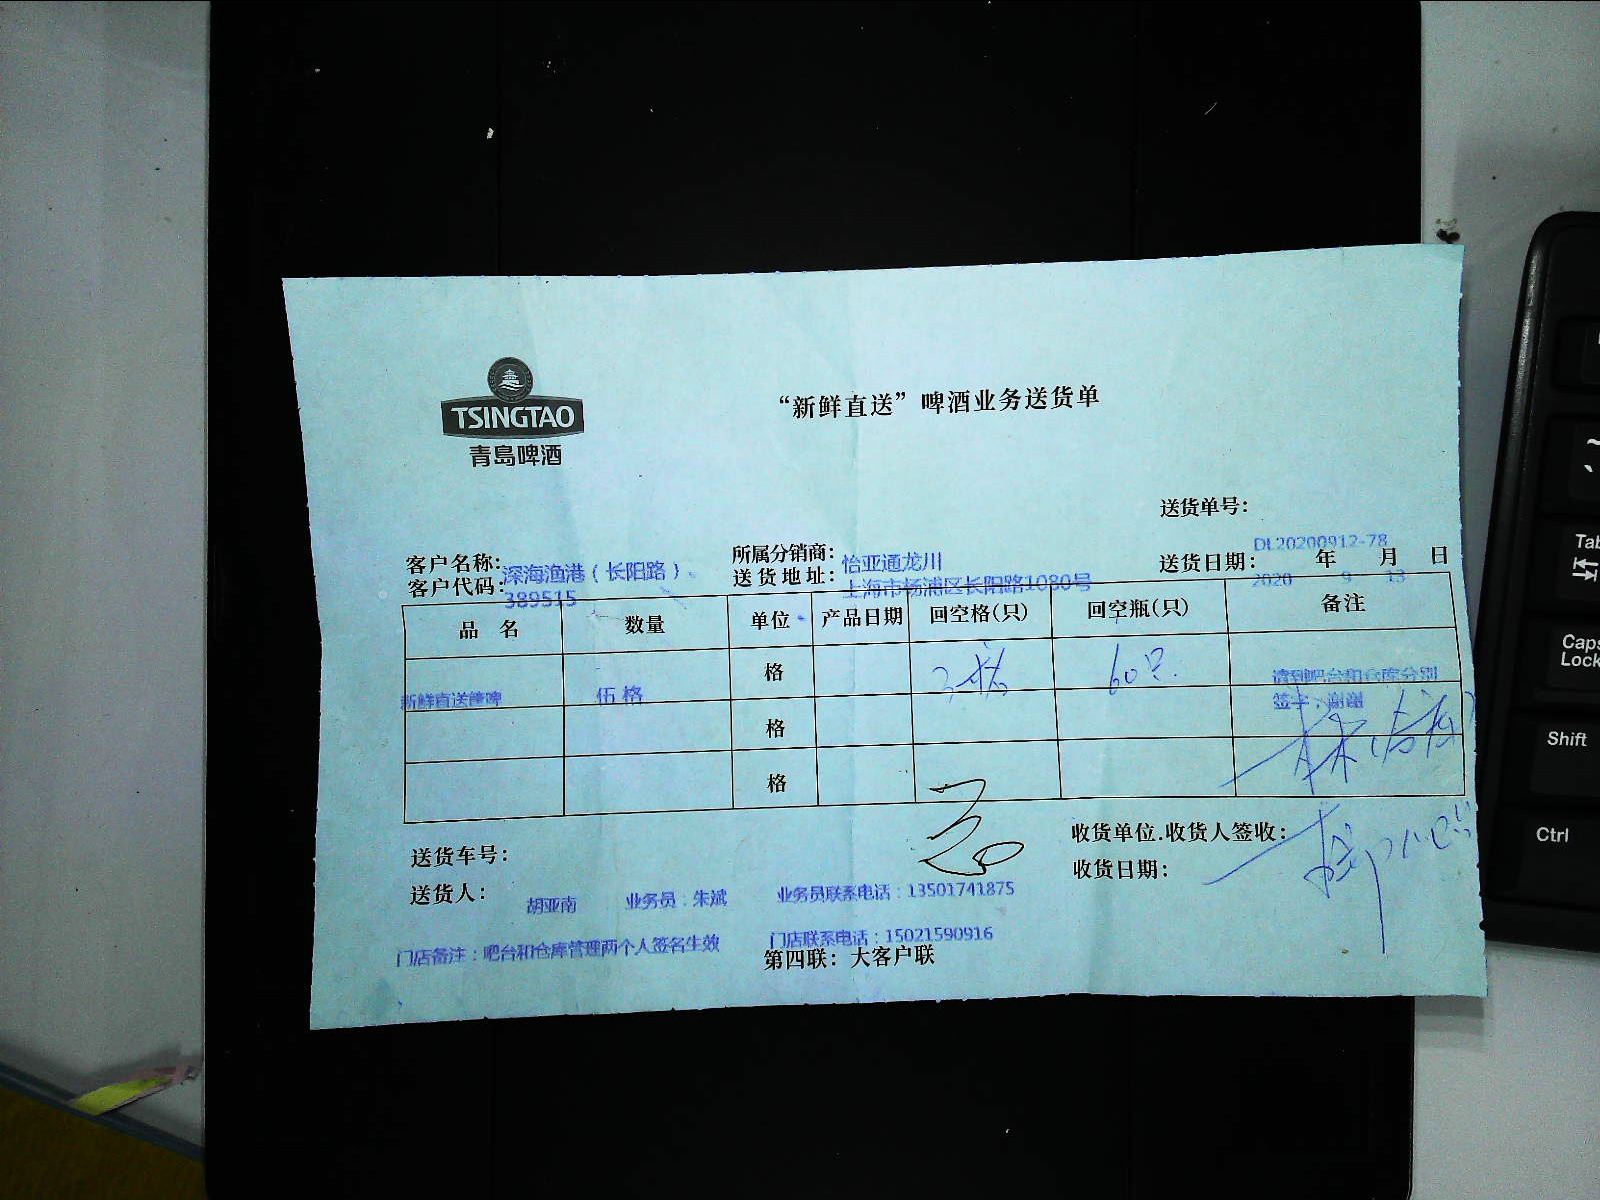 TSINGTAO
青岛啤酒
“新鲜直送”啤酒业务送货单
送货单号：DL20200912-78
客户名称：深海渔港（长阳路）、 所属分销商：怡亚通龙川 送货日期：2020年9月13日
客户代码：389515 送货地址：上海市杨浦区长阳路1080号
品 名 数量 单位 产品日期 回空格(只) 回空瓶(只) 备注
新鲜直送 伍格 格 3格 60只 请到吧台和仓库分别签字，谢谢
格
格
送货车号： 收货单位.收货人签收：
送货人：胡亚南 业务员：朱斌 业务员联系电话：13501741875 收货日期：
门店备注：吧台和仓库管理两个人签名生效 门店联系电话：15021590916
第四联：大客户联
Tab
Caps Lock
Shift
Ctrl